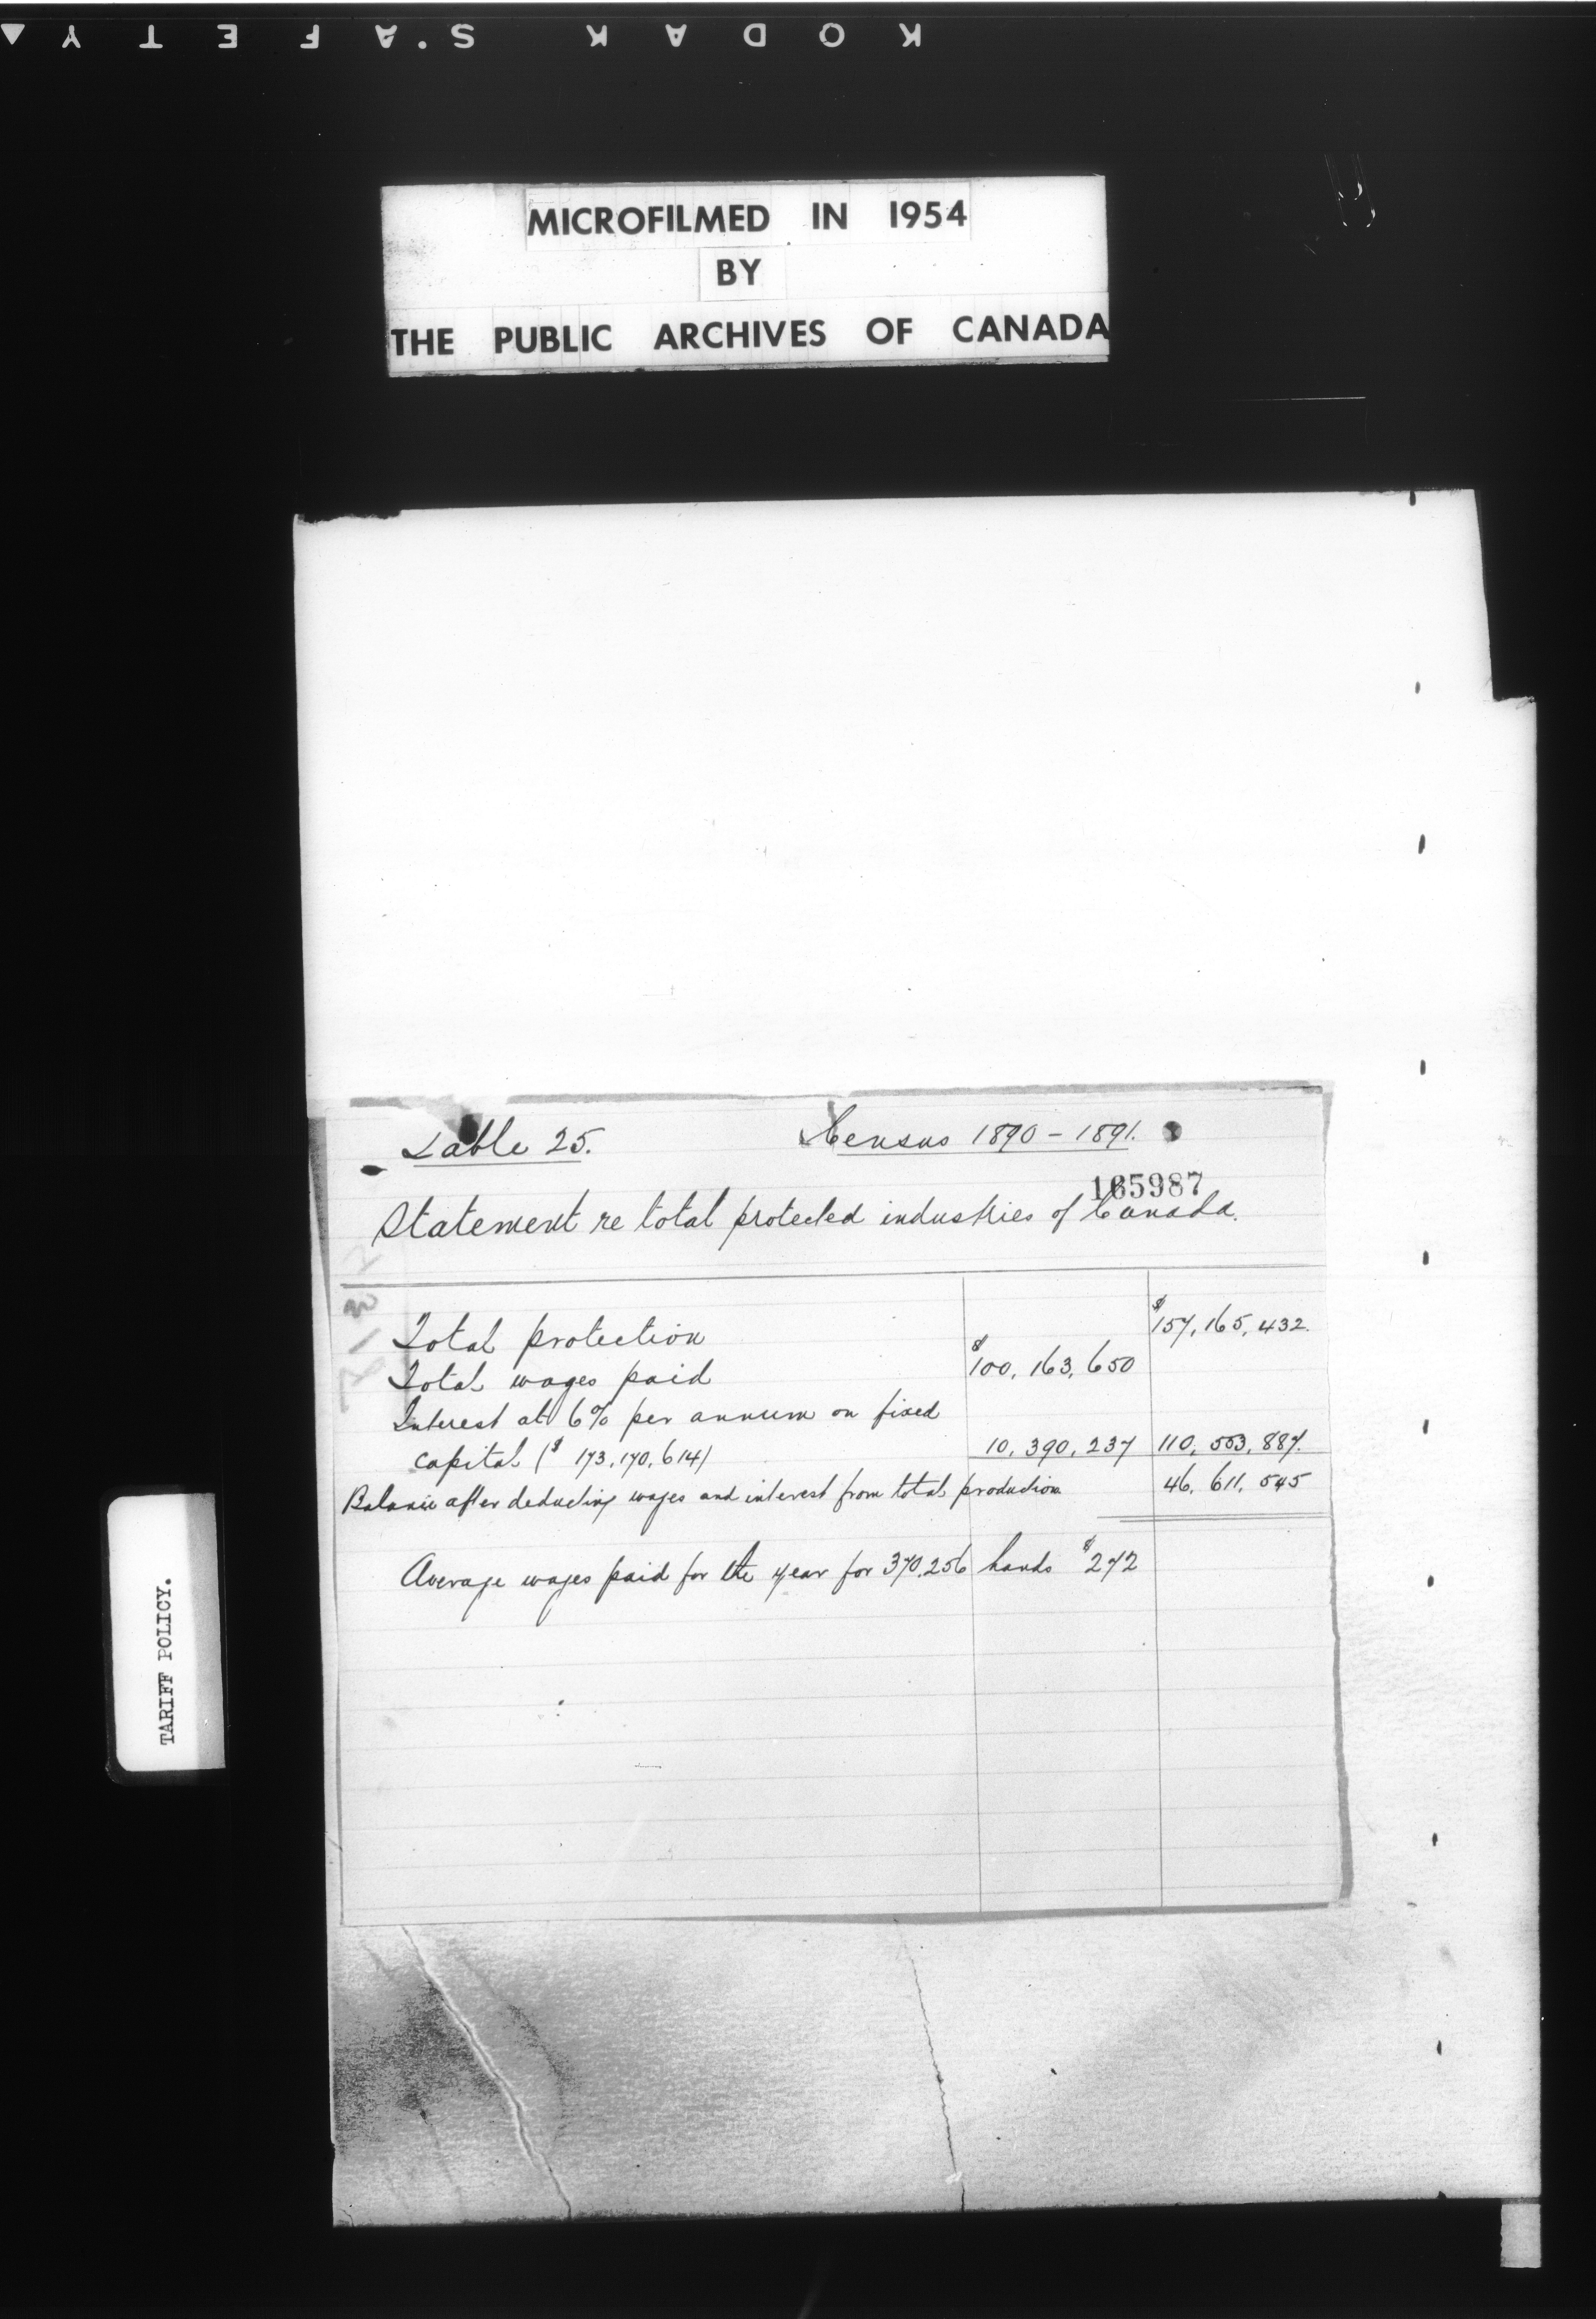 KODAK SAFETY
MICROFILMED IN 1954
BY
THE PUBLIC ARCHIVES OF CANADA
Table 25. Census 1890 - 1891.
165987
Statement re total protected industries of Canada.
Total protection $157,165,432.
Total wages paid $100,163,650
Interest at 6% per annum on fixed
capital ($ 173,170,614) 10,390,237 110,553,887.
Balance after deducting wages and interest from total production 46,611,545
Average wages paid for the year for 370,256 hands $272
TARIFF POLICY.